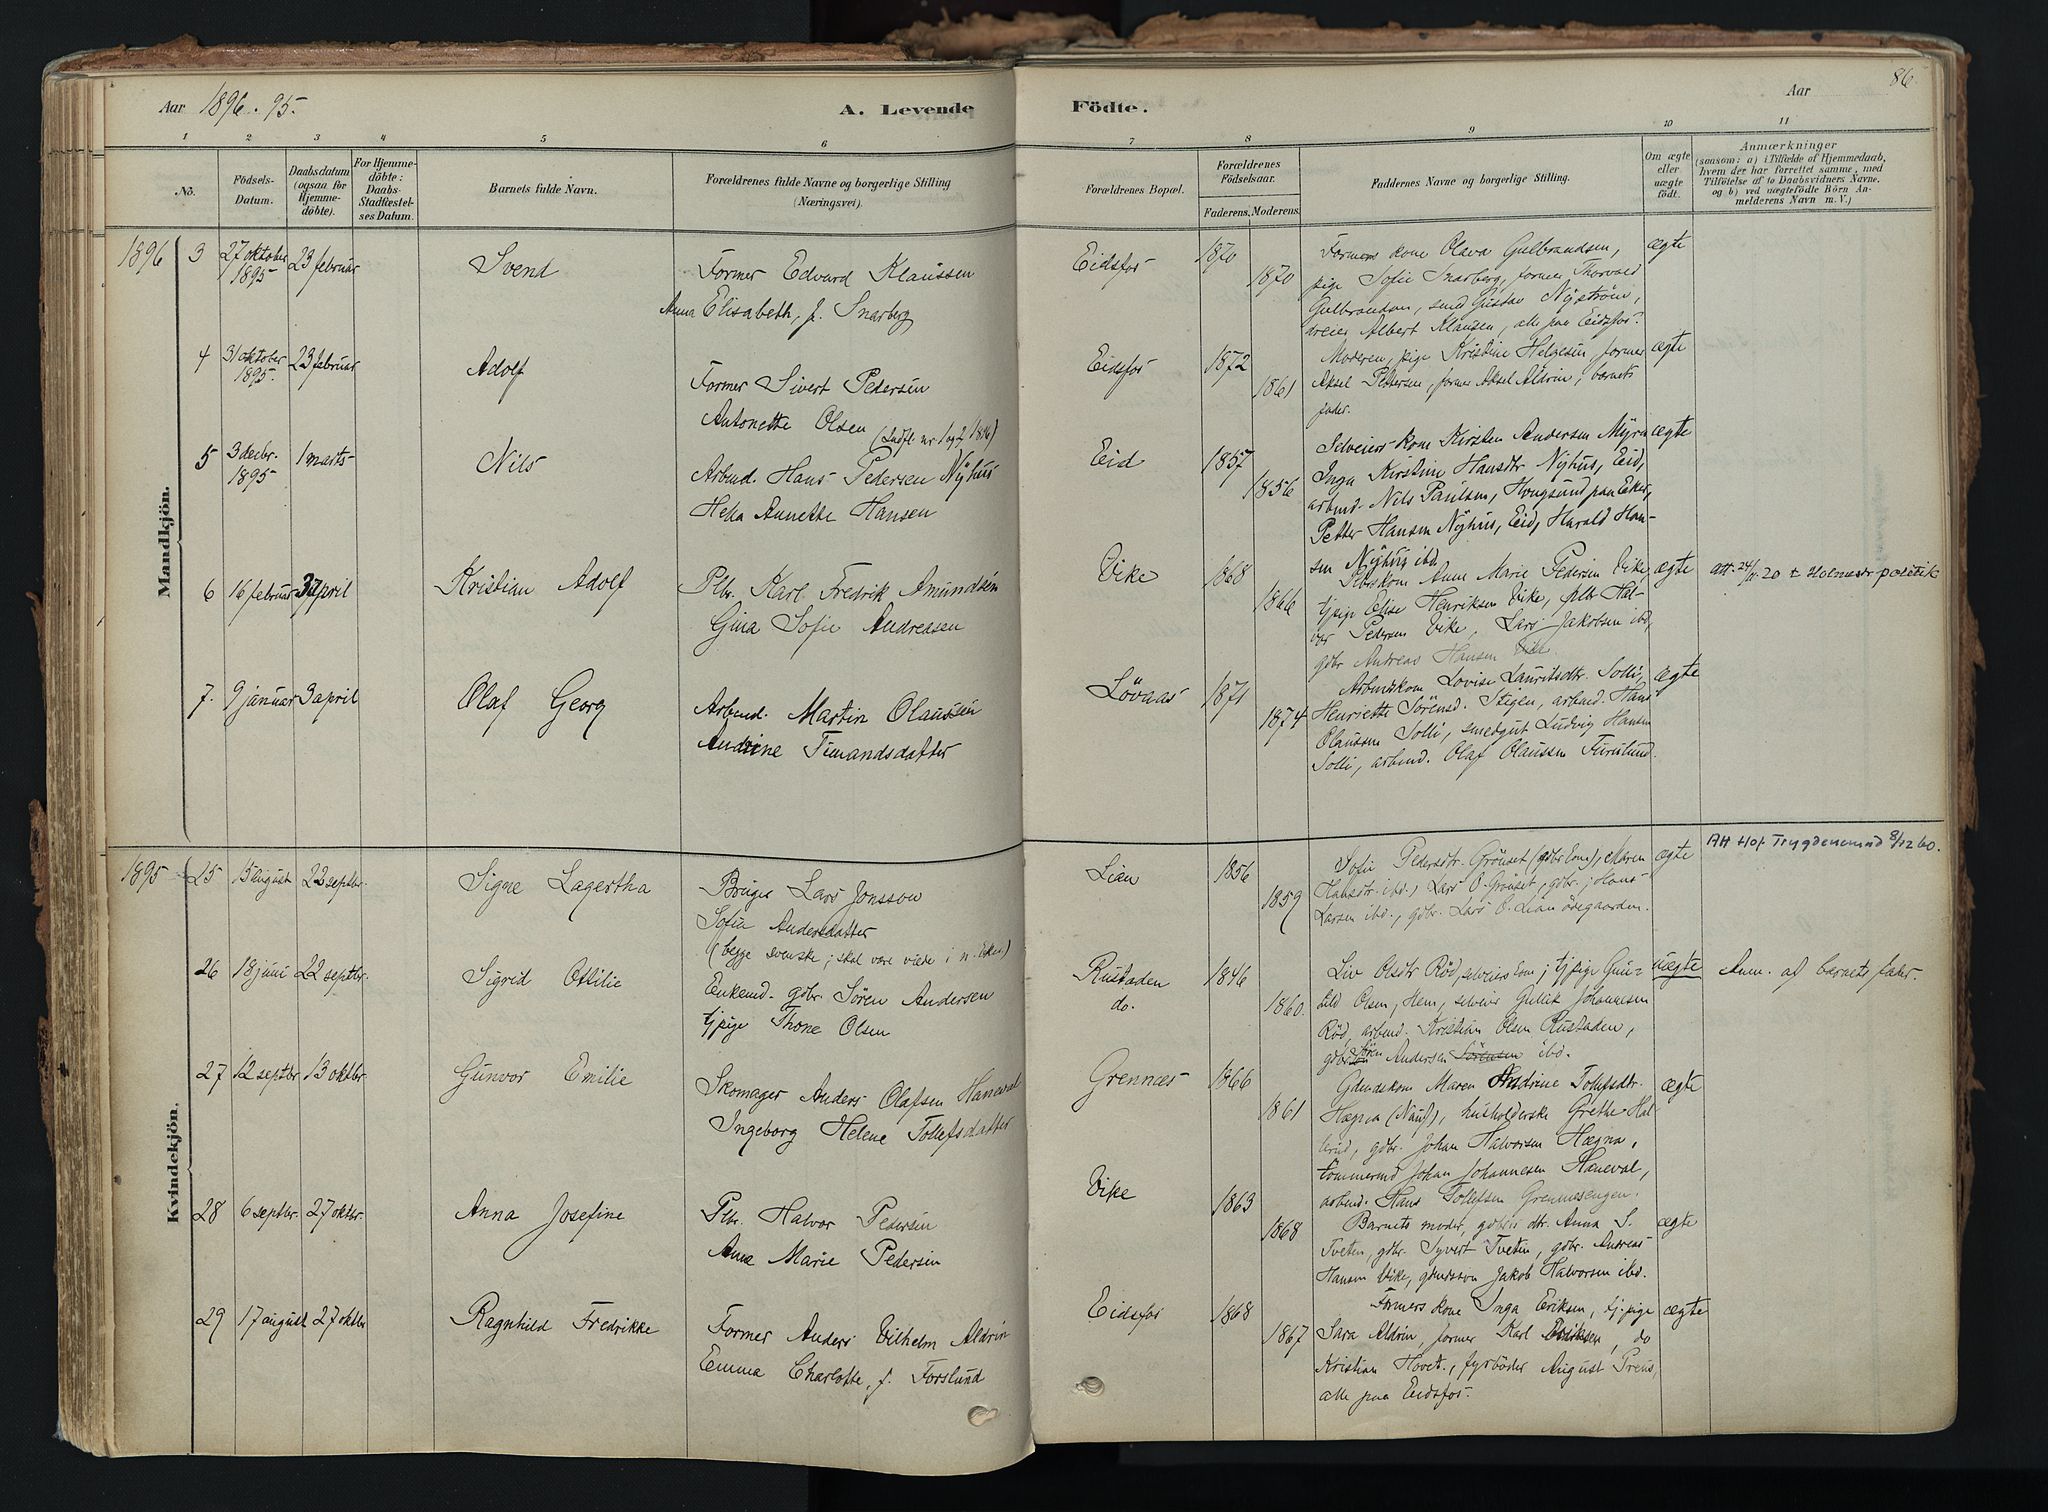 Aar 1896. 95.
A. Levende
Födte.
Aar
86.
1 2 3 4 5 6 7 8 9 10 11
No.
Födsels-
Datum.
Daabsdatum
(ogsaa for
Hjemme-
döbte).
For Hjemme-
döbte:
Daabs-
Stadfæstel-
ses Datum.
Barnets fulde Navn.
Forældrenes fulde Navne og borgerlige Stilling
(Næringsvei).
Forældrenes Bopæl.
Forældrenes
Födselsaar.
Faderens. Moderens.
Faddernes Navne og borgerlige Stilling.
Om ægte
eller
uægte
födt.
Anmærkninger
(saasom: a) i Tilfælde af Hjemmedaab,
hvem der har forrettet samme, med
Tilföielse af to Daabsvidners Navne.
og b) ved uægtefödte Börn An-
melderens Navn m. V.)
Mandkjön.
1896 3 27 oktober 1895 23 februar
Svend
Former Edvard Klaussen
Anna Elisabeth, f. Snarberg
Eidsfos 1870 1870
Formers kone Olava Gulbrandsen,
pige Sofie Snarberg, former Thorvald
Gulbrandsen, smed Gustav Nyström,
Albert Klausen, alle paa Eidsfos.
ægte
4 31 oktober 1895. 23 februar
Adolf
Former Sivert Pedersen
Antonette Olsen (Indfl. nr. 1 og 2 1896)
Eidsfos 1872 1861
Moderen, pige Kristine Helgesen, former
Aksel Pettersen, former Aksel Aldrin, barnets
fader.
ægte
5 3 decbr. 1895 1 marts
Nils
Arbmd. Hans Pedersen Nyhus
Helga Annette Hansen
Eid 1857 1856
Selveiers kone Kirsten Andersen Myra
Inga Kirstine Hansdtr Nyhus, Eid,
arbmd. Nils Paulsen, Hougsund paa Eker,
Petter Hansen Nyhus, Eid, Harald Han-
sen Nyhus ibd.
ægte
6 16 februar 3 april
Kristian Adolf
Plbr. Karl Fredrik Amundsen
Gina Sofie Andreasen
Vike 1868 1866
Plbrs kone Anne Marie Pedersen Vike,
tjpige Elise Henriksen Vike, plbr Hal-
vor Pedersen Vike, Lars Jakobsen ibd,
gdbr Andreas Hansen Vike.
ægte
att. 24/11-20 t Holmestr politik
7. 9 januar 3 april
Olaf Georg
Arbmd. Martin Olaussen
Andrine Timandsdatter
Lövaas 1871 1874
Arbmdskone Lovise Lauritsdtr. Solli,
Henriette Sörensd. Stigen, arbmd. Hans
Olaussen Solli, smedgut Ludvig Hansen
Solli, arbmd. Olaf Olaussen Furulund.
ægte
Kvindekjön.
1895 25 15 august 22 septbr.
Signe Lagertha
Bruger Lars Jonsson
Sofie Andersdatter
(begge svenske; skal være viede i n. Eker)
Lian 1856 1859
Sofie Pedersdtr. Grönset (gdbr kone), Maren
Hansdtr. ibd., Lars O. Grönset, gdbr., Hans
Larsen ibd., gdbr. Lars O. Lian ödegaarden.
ægte
Att Hof Trygdenemnd 8/12 60.
26 18 juni 22 septbr.
Sigrid Ottilie
Enkemd. gdbr. Sören Andersen
tjpige Thone Olsen
Rustaden
do.
1846 1860.
Liv Olsdtr Röd, selveiers kone, tjpige Gun-
ild Olsen, Hem, selveier Gullik Johannesen
Röd, arbmd. Kristian Olsen Rustaden,
gdbr Sören Andersen Sörensen ibd.
uægte
Anm. af barnets fader.
27 12 septbr 13 oktbr.
Gunvor Emilie
Skomager Anders Olafsen Haneval
Ingeborg Helene Tollefsdatter
Grennæs 1866 1861
Gdmdskone Maren Andrine Tollefsdtr.
Hægna (Nauf), husholderske Grethe Hal-
gdbr. Johan Halvorsen Hægna,
tömmermd Johan Johannesen Haneval,
arbmd. Hans Tollefsen Grennæsengen.
ægte
28 6 septbr. 27 oktbr.
Anna Josefine
Plbr. Halvor Pedersen
Anne Marie Pedersen
Vike 1863 1868
Barnets moder, gdbrs dtr. Anna S.
Tveten, gdbr. Syvert Tveten, gdbr. Andreas
Hansen Vike, gdmdssön Jakob Halvorsen ibd.
ægte
29 17 august 27 oktbr
Ragnhild Fredrikke
Former Anders Vilhelm Aldrin
Emma Charlotte, f. Forslund
Eidsfos 1868 1867
Formers kone Inga Eriksen, tj.pige
Sara Aldrin, former Karl Eriksen, do
Kristian Hovet., fyrböder August Preus,
alle paa Eidsfos.
ægte